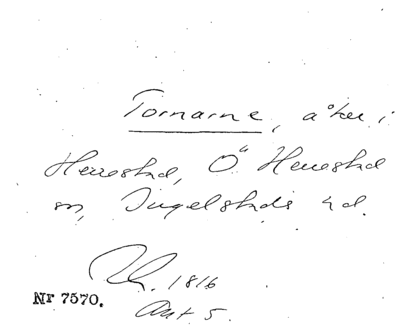 Tornarne, åker i
Herrestad, Ö Herrestad
sn, Ingelstads hd.
1816
Nr 7570.
Akt 5.